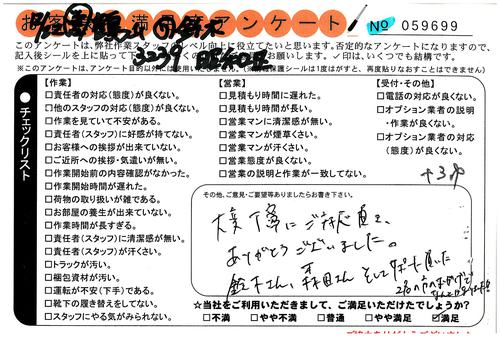 お客様 満足 アンケート
No 059699
このアンケートは、弊社作業スタッフのレベル向上に役立てたいと思います。否定的なアンケートになりますので、
記入後シールを上に貼って お願いします。✓印は、いくつでも結構です。
※このアンケートは、アンケート目的以外には使用いたしません。(※情報保護シールは1度がすと、再度貼りなおすことはできません)
3239
チェックリスト
【作業】
□責任者の対応(態度)が良くない。
□他のスタッフの対応(態度)が良くない。
□作業を見ていて不安がある。
□責任者(スタッフ)に好感が持てない。
□お客様への挨拶が出来ていない。
□ご近所への挨拶・気遣いが無い。
□作業開始前の内容確認がなかった。
□作業開始時間が遅れた。
□荷物の取り扱いが雑である。
□お部屋の養生が出来ていない。
□作業時間が長すぎる。
□責任者(スタッフ)に清潔感が無い。
□責任者(スタッフ)が汗くさい。
□トラックが汚い。
□梱包資材が汚い。
□運転が不安(下手)である。
□靴下の履き替えをしてない。
□スタッフにやる気がみられない。
【営業】
□見積もり時間に遅れた。
□見積もり時間が長い。
□営業マンに清潔感が無い。
□営業マンが煙草くさい。
□営業マンが汗くさい。
□営業態度が良くない。
□営業の説明と作業が一致してない。
【受付・その他】
□電話の対応が良くない。
□オプション業者の説明
・作業が良くない。
□オプション業者の対応
(態度)が良くない。
その他、ご意見・ご要望等ありましたらお書き下さい。
大変丁寧にご対応頂き、
ありがとうございました。
鈴木さん、森田さん そして サポート頂いた
☆当社をご利用いただきまして、ご満足いただけたでしょうか?
□不満 □やや不満 □普通 □やや満足 ☑満足